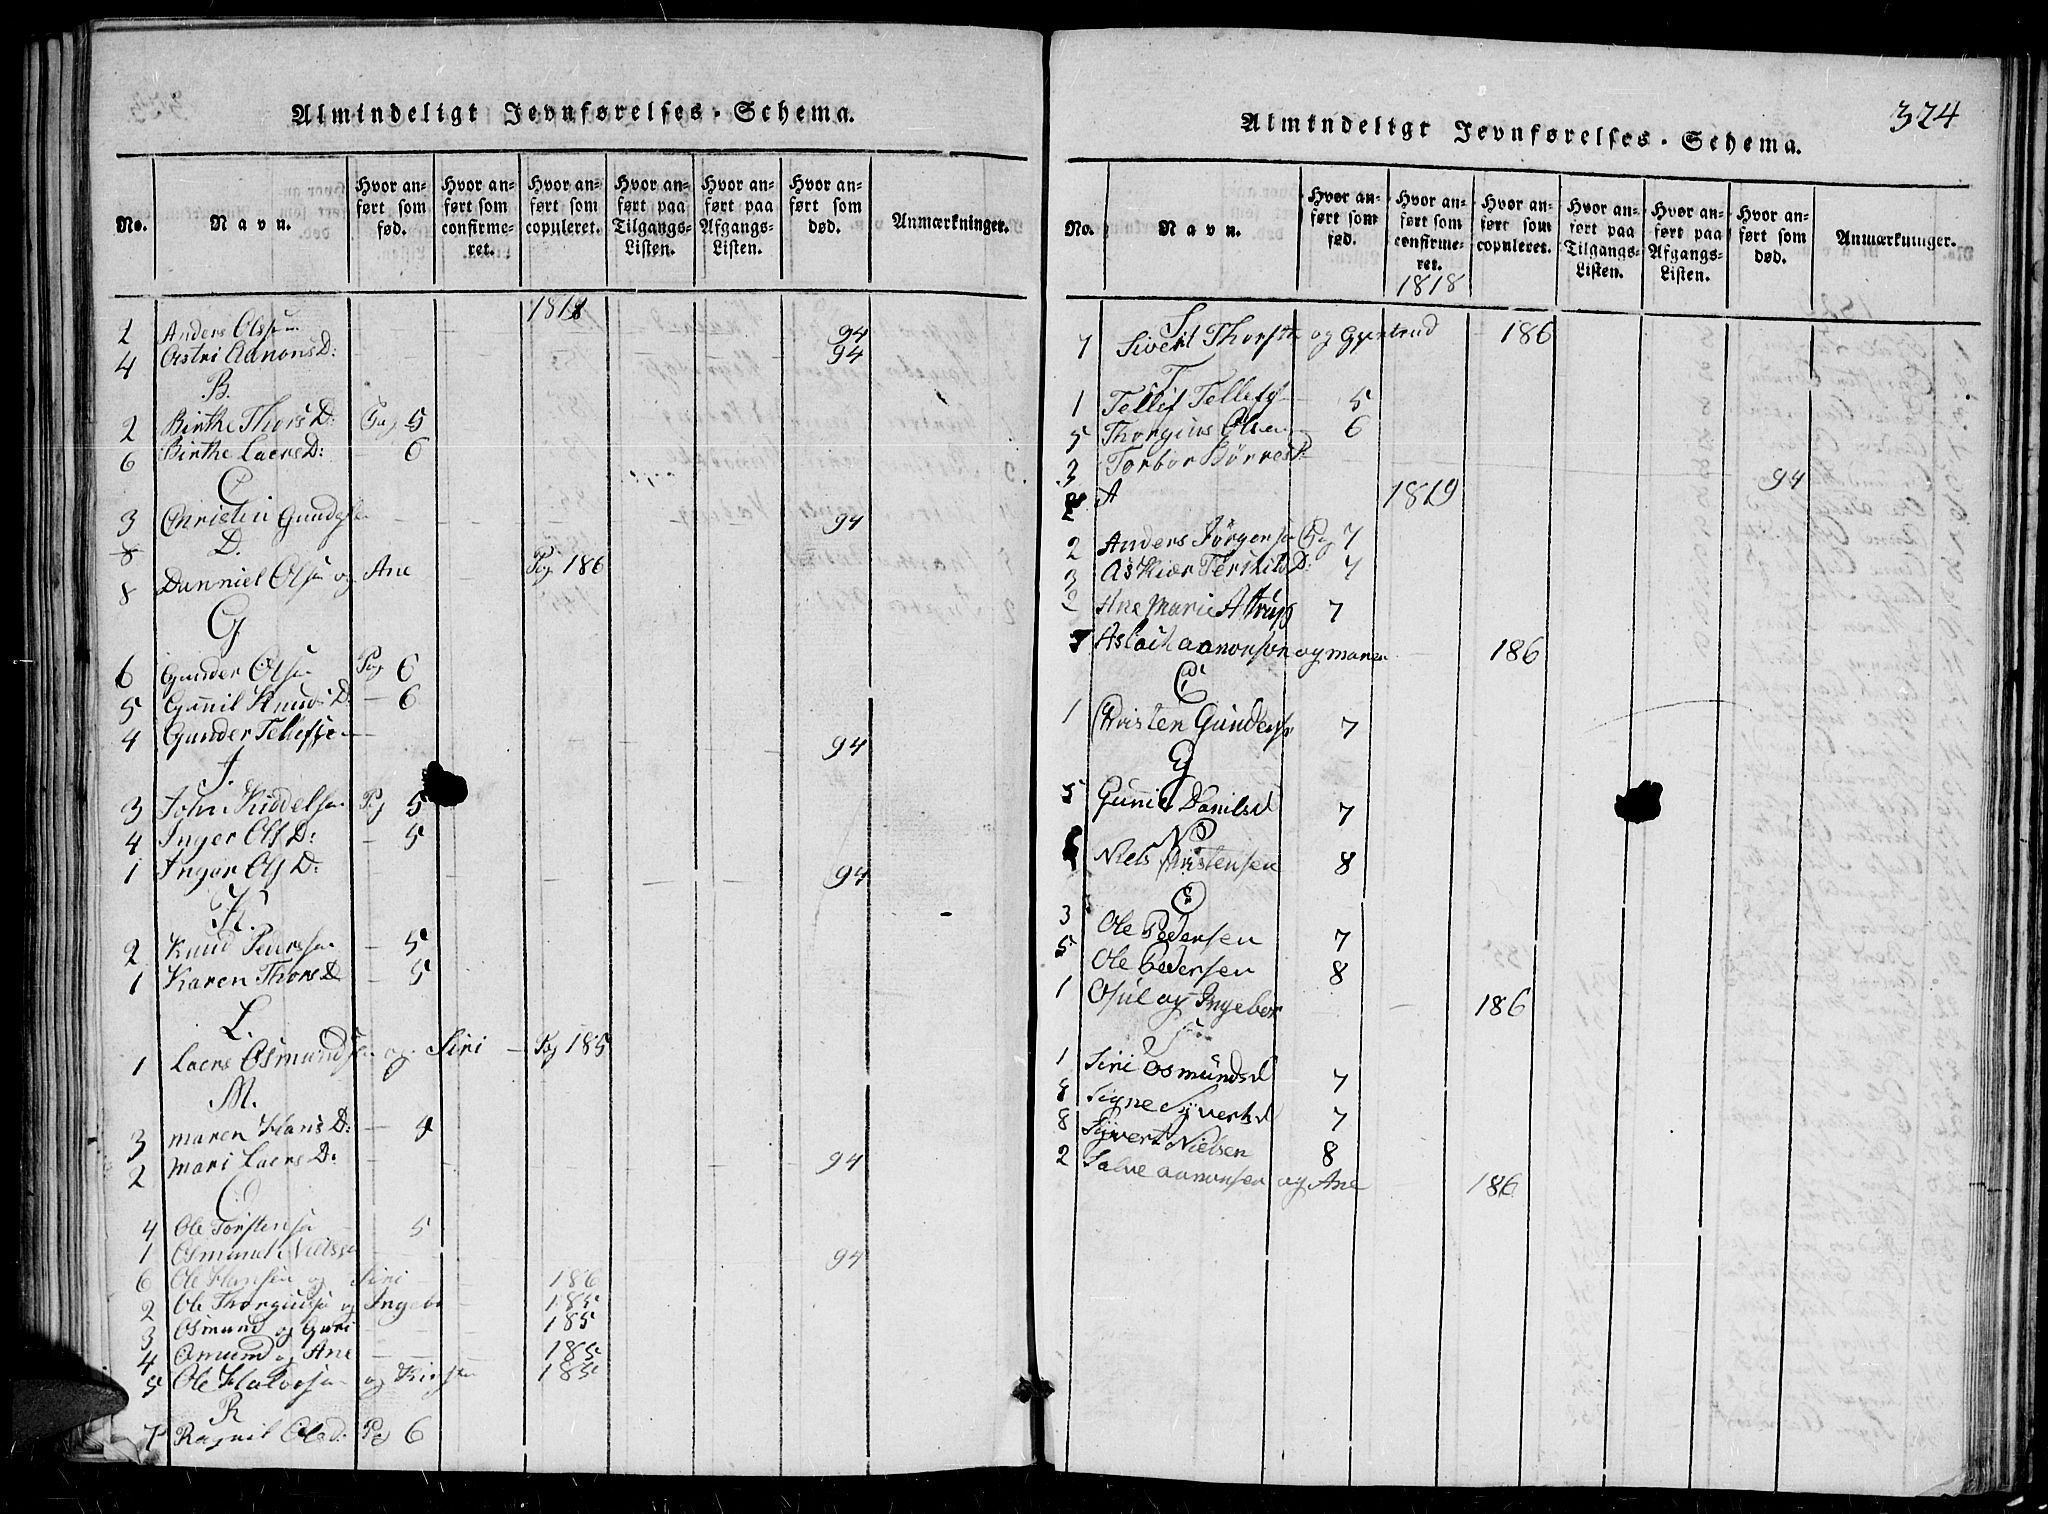 Almindeligt Jevnførelses-Schema.
No.
Navn.
Hvor anført som fød.
Hvor anført som confirmeret.
Hvor anført som copuleret.
Hvor anført paa Tilgangs-Listen.
Hvor anført paa Afgangs-Listen.
Hvor anført som død.
Anmærkninger.
1818
2 Anders Olssen 94
4 Astri AanonsD: 94
B.
2 Birthe ThorsD: Pag 5
6 Birthe LaersD: 6
C
3 Christen 94
8 D.
8 Danniel Olsen og Ane Pag 186
G
6 Gunder Olsen Pag 6
5 Gunnil KnudsD. 6
4 Gunder Tellefsen 94
J.
3 John Kiddelsen Pag 5
4 Inger OlsD: 5
1 Inger OlsD: 94
K.
2 Knud 5
1 Karen ThorsD 5
L.
1 Laers Osmundsen og Siri Pag 185
M.
3 Maren HansD: 4
2 Mari LaersD: 94
O
4 Ole Torstensen 5
1 Osmund Nielssen 94
6 Ole Hansen og Siri 186
2 Ole og Ingebor 185
3 Osmund og Guri 185
4 Omund og Ane 185
5 Ole Halvorsen og Kirsten 185
R
7 Ragnil Olsd: Pag 6
Almindeligt Jevnførelses-Schema.
324
No.
Navn.
Hvor anført som fød.
Hvor anført som confirmeret.
Hvor anført som copuleret.
Hvor anført paa Tilgangs-Listen.
Hvor anført paa Afgangs-Listen.
Hvor anført som død.
Anmærkninger.
1818
S
7 Sivert Thorsten og Gjertrud 186
T
1 Tellef Tellefsen 5
5 Thorgius Olsen 6
3 Torbor 94
A 1819
2 Anders Jørgensen Pag 7
3 Askier TerkildD: 7
Ane Marie Attrup 7
Aslach Aanonson og Maren 186
C
1 Christen Gundersen 7
G
5 Gunnil Danilsd 7
N
Niels Christensen 8
O
3 Ole Pedersen 7
5 Ole Pedersen 8
1 Osul og Ingebor 186
S
1 Siri Osmundsd 7
Signe Syvertsd 7
8 Syvert Nielsen 8
2 Salve Aanonsen og Ane 186